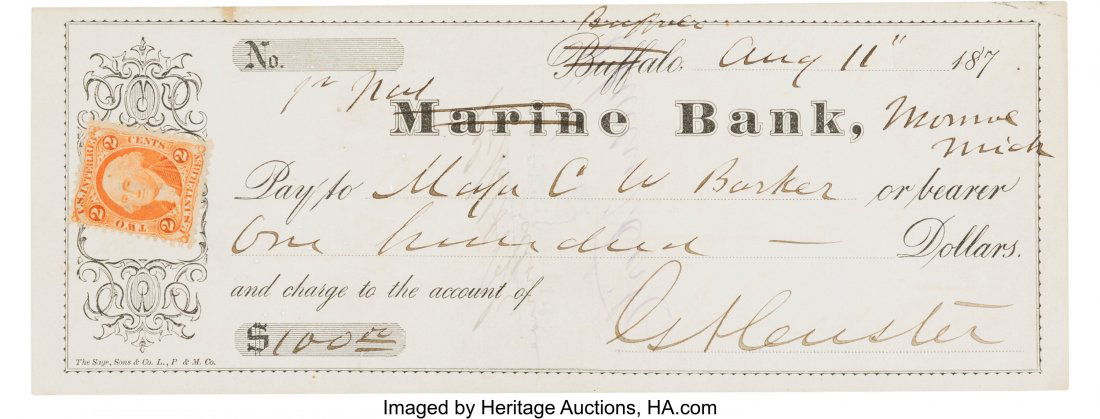 Buffalo
No. Buffalo, Aug 11" 187
1st Nat
Marine Bank, Monroe
Mich
Pay to Maja C W Barker or bearer
One hundred — Dollars.
and charge to the account of
$ 100 00 GACuster
The Sage, Sons & Co. L., P. & M. Co.
U.S. INTER. REV.
2 CENTS 2
2 TWO 2
U.S. INTER. REV.
Imaged by Heritage Auctions, HA.com